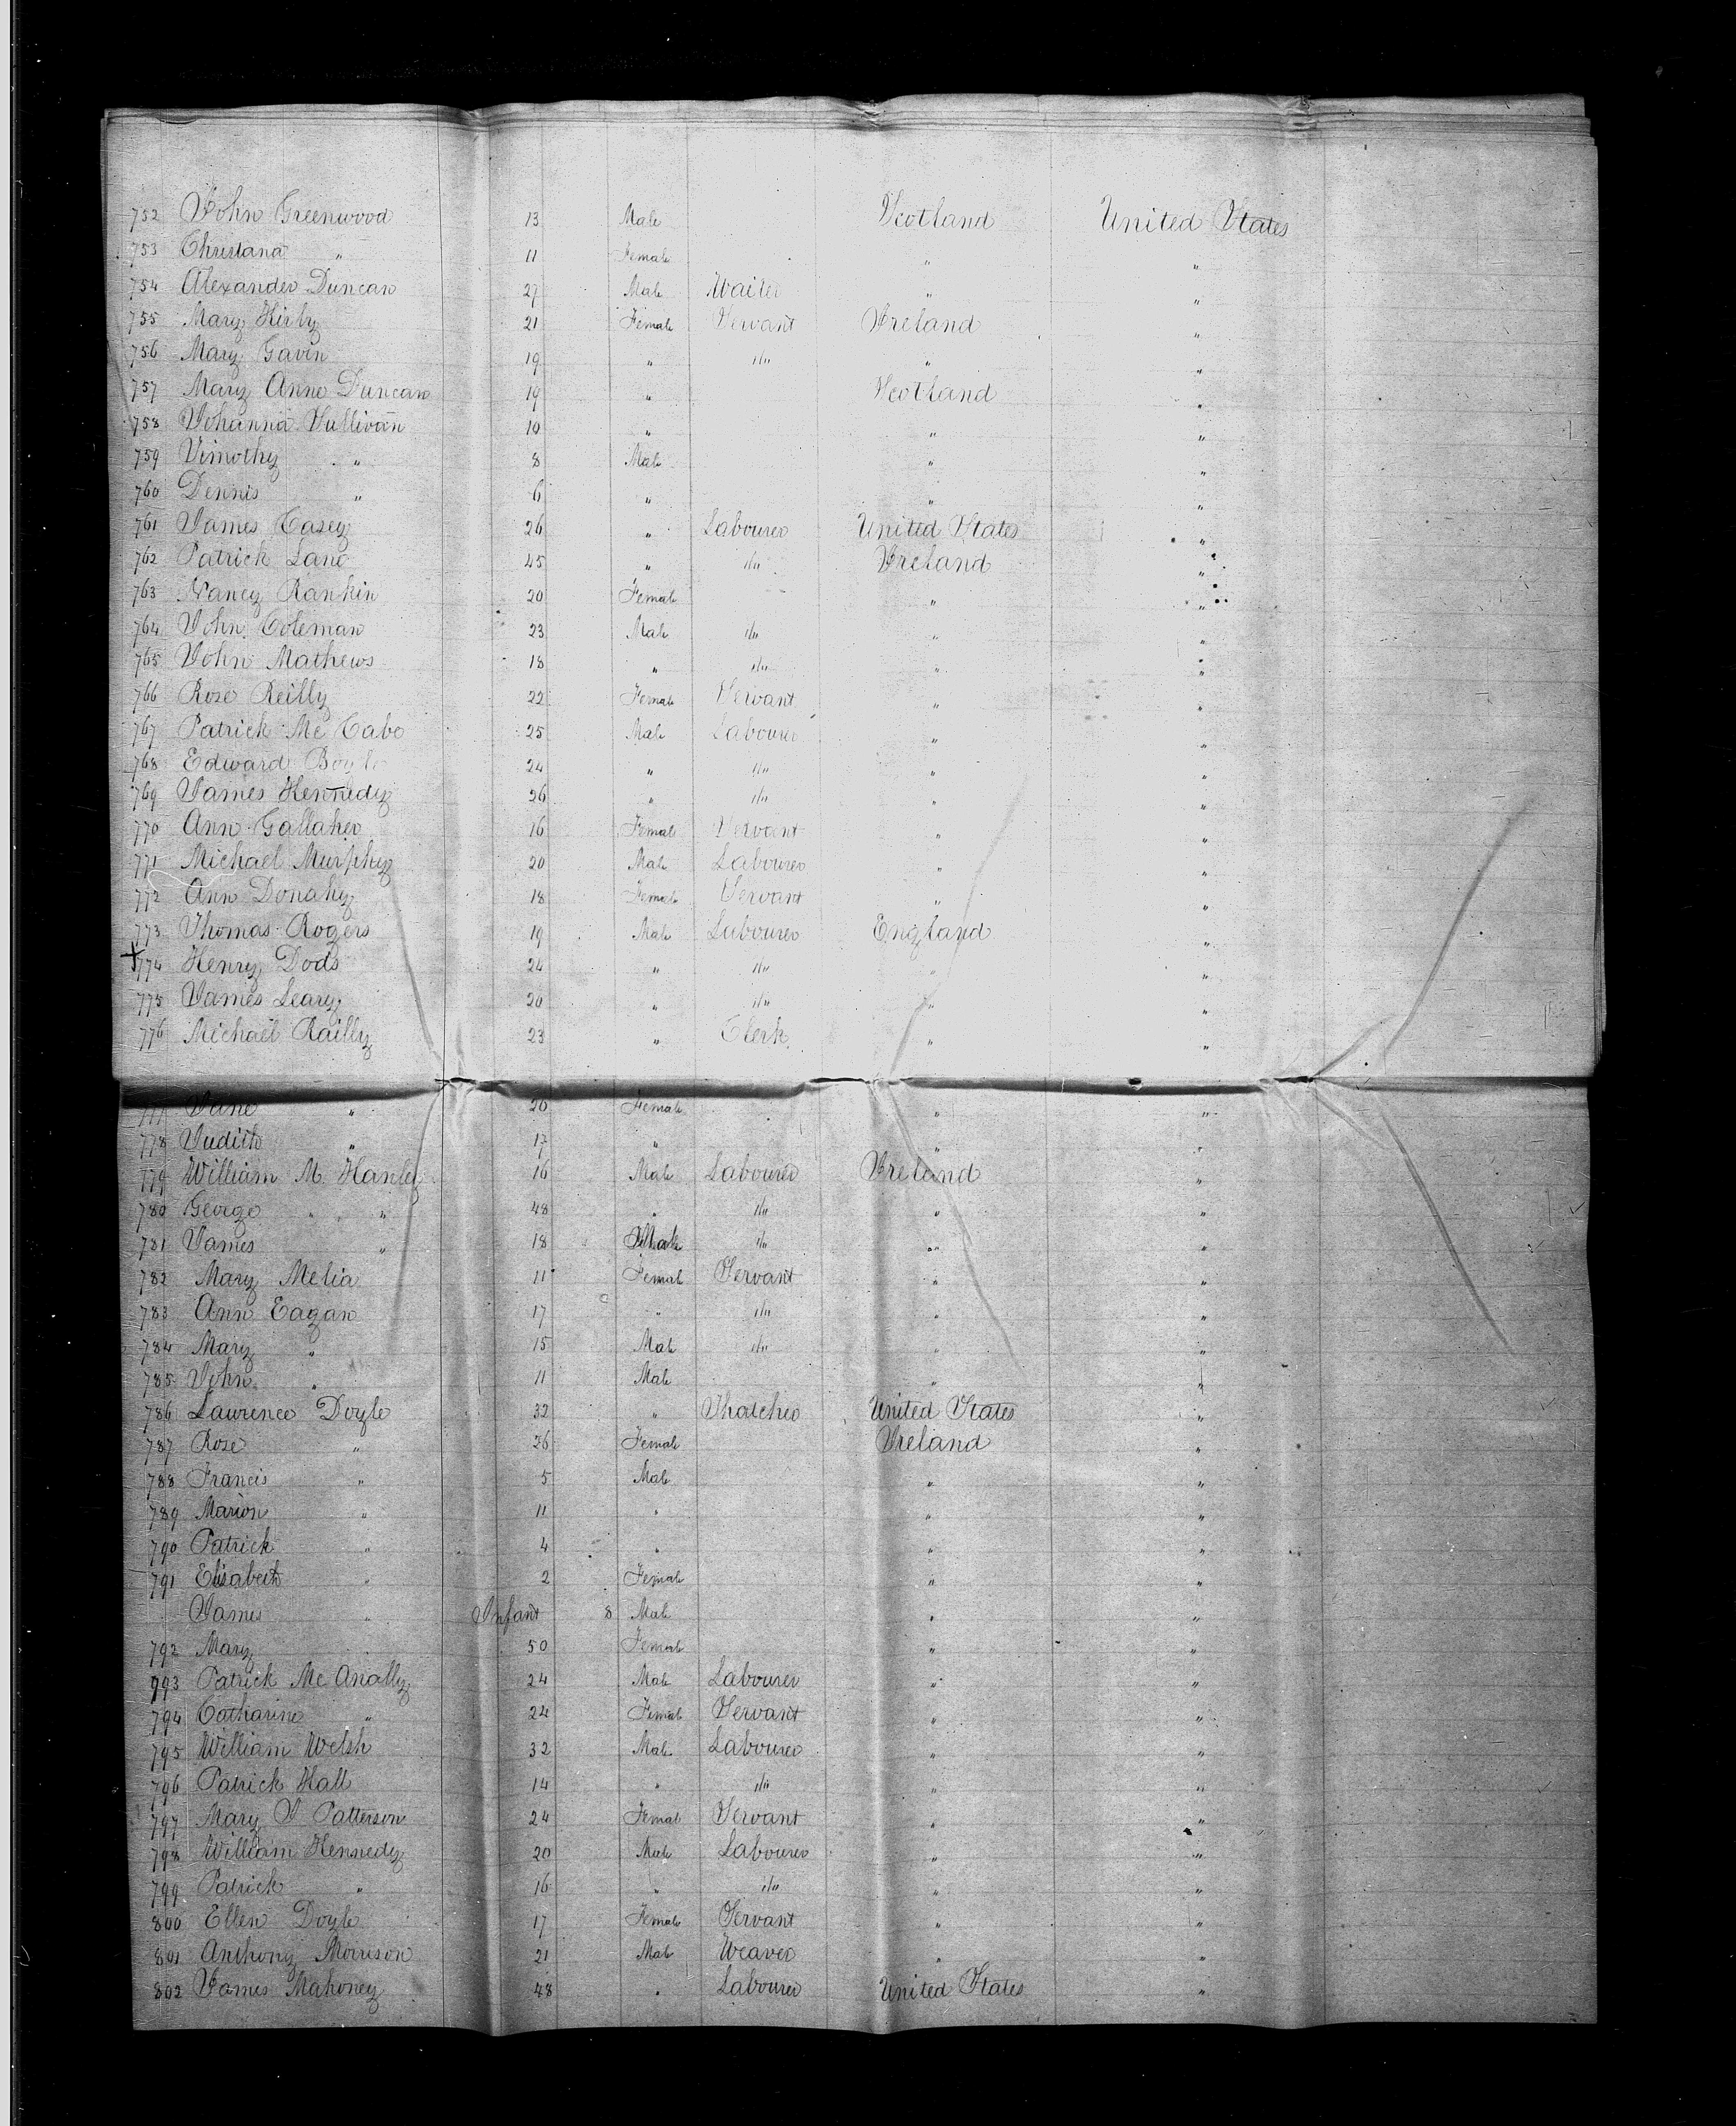 752 John Greenwood 13 Male Scotland United States
753 Christana " 11 Female " "
754 Alexander Duncan 27 Male Waiter " "
755 Mary Kirby 21 Female Servant Ireland "
756 Mary Gavin 19 " "/" " "
757 Mary Anne Duncan 19 " Scotland "
758 Johanna Sullivan 10 " " "
759 Timothy " 8 Male " "
760 Dennis " 6 " " "
761 James Casey 26 " Labourer United States "
762 Patrick Lane 45 " "/" Ireland "
763 Nancy Rankin 20 Female " "
764 John Coleman 23 Male "/" " "
765 John Mathews 18 " "/" " "
766 Rose Reilly 22 Female Servant " "
767 Patrick Mc Cabe 25 Male Labourer " "
768 Edward Boyle 24 " "/" " "
769 James Kennedy 26 " "/" " "
770 Ann Gallaher 16 Female Servant " "
771 Michael Murphy 20 Male Labourer " "
772 Ann Donahy 18 Female Servant " "
773 Thomas Rogers 19 Male Labourer England "
+ 774 Henry Dods 24 " "/" " "
775 James Leary 20 " "/" " "
776 Michael Railly 23 " Clerk " "
777 Jane " 20 Female " "
778 Judith " 17 " " "
779 William M. 16 Male Labourer Ireland "
780 George " " 48 " "/" " "
781 James " 18 Male "/" " "
782 Mary Melia 11 Female Servant " "
783 Ann Eagan 17 " "/" " "
784 Mary " 15 Male "/" " "
785 John " 11 Male " "
786 Lawrence Doyle 32 " Thatcher United States "
787 Rose " 26 Female Ireland "
788 Francis " 5 Male " "
789 Marion " 11 " " "
790 Patrick " 4 " " "
791 Elisabeth " 2 Female " "
James " Infant 8 Male " "
792 Mary " 50 Female " "
793 Patrick Mc Anally 24 Male Labourer " "
794 Catharine " 24 Female Servant " "
795 William Welsh 32 Male Labourer " "
796 Patrick Hall 14 " "/" " "
797 Mary J Patterson 24 Female Servant " "
798 William Kennedy 20 Male Labourer " "
799 Patrick " 16 " "/" " "
800 Ellen Doyle 17 Female Servant " "
801 Anthony Morrison 21 Male Weaver " "
802 James Mahoney 48 " Labourer United States "